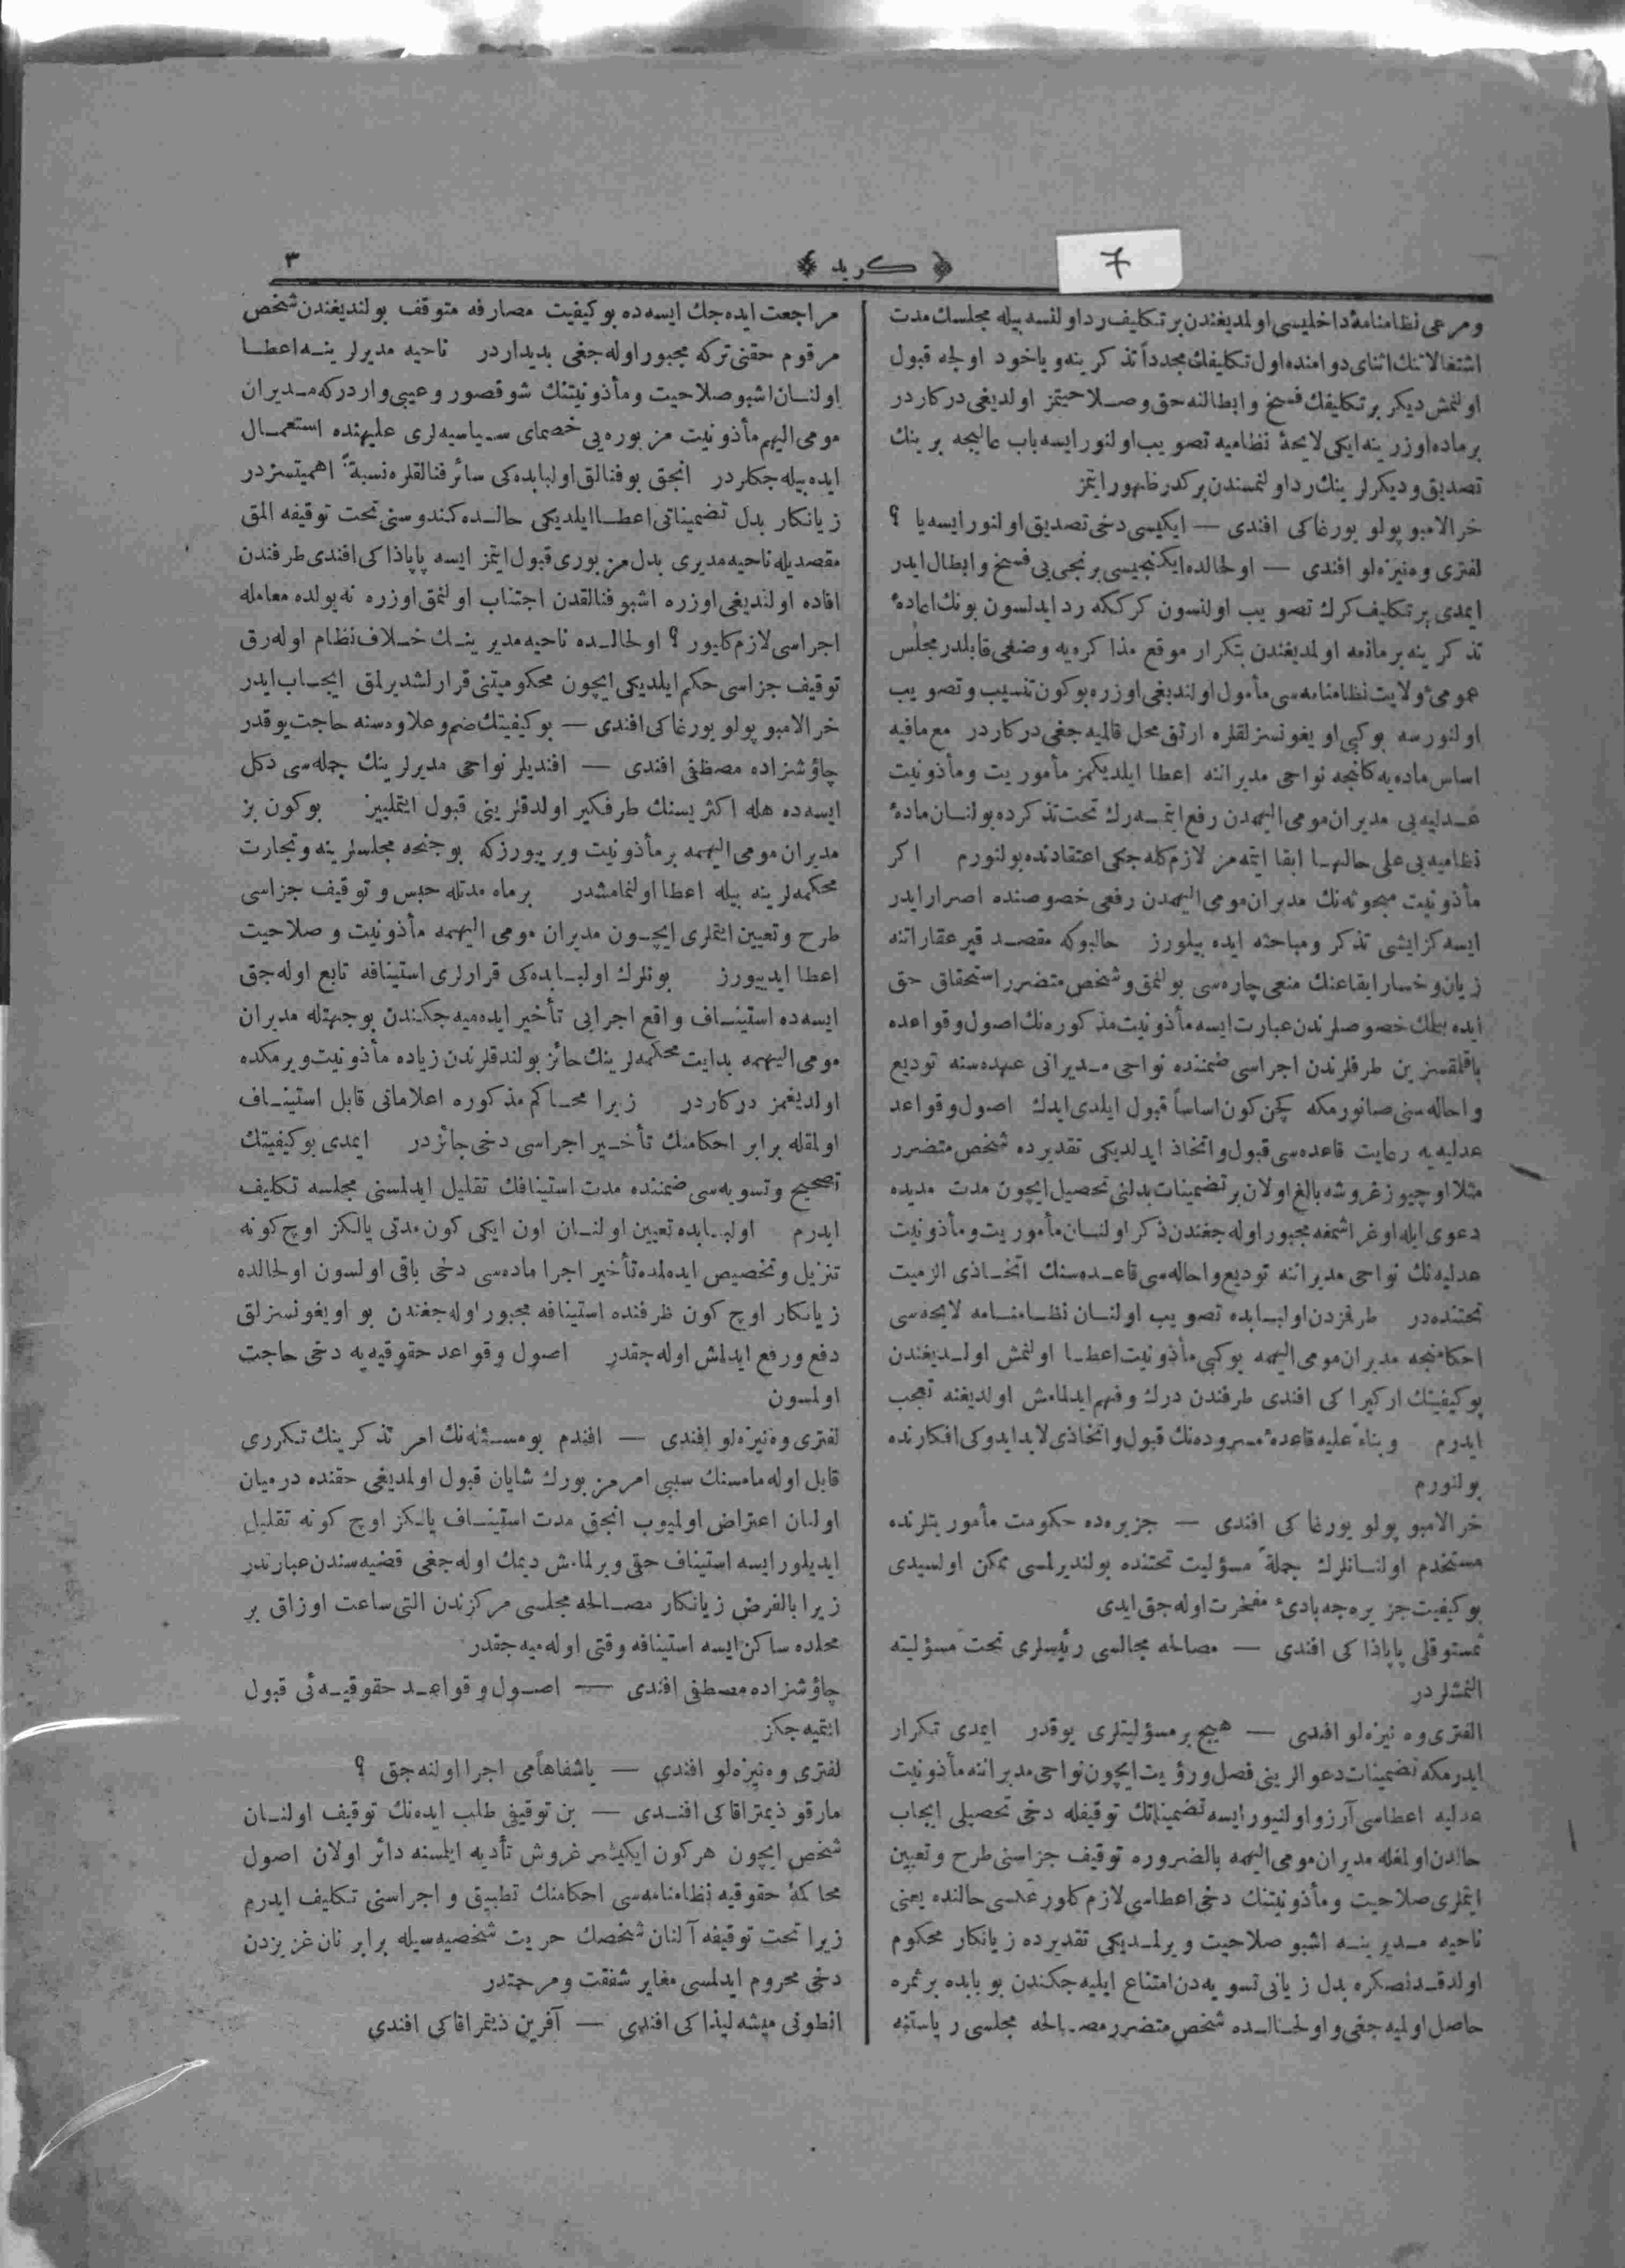 ﴿ كريد ﴾
٣
7
ومرعى نظامنامهٔ داخليسى اولمديغندن بر تكليف رد اولنسه بيله مجلسك مدت
اشتغالاتنك اثناى دوامنده اول تكليفك مجدداً تذكرينه و ياخود اولجه قبول
اولنمش ديكر بر تكليفك فسخ و ابطالنه حق و صلاحيتمز اولديغى دركاردر
بر ماده اوزرينه ايكى لايحهٔ نظاميه تصويب اولنور ايسه باب عاليجه برينك
تصديق و ديكرلرينك رد اولنمسندن بر كدر ظهور ايتمز
خرالامبو پولو بورغاكى افندى — ايكيسى دخى تصديق اولنور ايسه يا ؟
لفترى وه نيزه لو افندى — اولحالده ايكنجيسى برنجى يى فسخ و ابطال ايدر
ايمدى بر تكليف كرك تصويب اولنسون كرككه رد ايدلسون بونك اعادهٔ
تذكرينه بر مانعه اولمديغندن بتكرار موقع مذاكره يه وضعى قابلدر مجلس
عمومئ ولايت نظامنامه سى مأمول اولنديغى اوزره بوكون تنسيب و تصويب
اولنورسه بوكبى اويغونسزلقلره ارتق محل قالميه جغى دركاردر مع مافيه
اساس ماده يه كلنجه نواحى مديراننه اعطا ايلديكمز مأموريت و مأذونيت
عدليه يى مديران مومى اليهمدن رفع ايتمه رك تحت تذكرده بولنان مادهٔ
نظاميه يى على حالها ابقا ايتمه مز لازم كله جكى اعتقادنده بولنورم اكر
مأذونيت مبحوثه نك مديران مومى اليهمدن رفعى خصوصنده اصرار ايدر
ايسه كز ايشى تذكر و مباحثه ايده بيلورز حالبوكه مقصد قير عقاراتنه
زيان و خسار ايقاعنك منعى چاره سى بولنمق و شخص متضرر استحقاق حق
ايده بيلمك خصوصلرندن عبارت ايسه مأذونيت مذكوره نك اصول و قواعده
باقلقسزين طرفلرندن اجراسى ضمننده نواحى مديرانى عهده سنه توديع
و احاله سنى صانورمكه كچن كون اساساً قبول ايلدى ايدك اصول و قواعد
عدليه يه رعايت قاعده سى قبول و اتخاذ ايدلديكى تقديرده شخص متضرر
مثلا اوچيوز غروشه بالغ اولان بر تضمينات بدلنى تحصيل ايچون مدت مديده
دعوى ايله اوغراشمغه مجبور اوله جغندن ذكر اولنان مأموريت و مأذونيت
عدليه نك نواحى مديراننه توديع و احاله سى قاعده سنك اتخاذى الزميت
تحتنده در طرفزدن اولبابده تصويب اولنان نظامنامه لايحه سى
احكامنجه مديران مومى اليهمه بوكبى مأذونيت اعطا اولنمش اولديغندن
بو كيفيتك اركيراكى افندى طرفندن درك و فهم ايدلمامش اولديغنه تعجب
ايدرم و بناءً عليه قاعدهٔ مسروده نك قبول و اتخاذى لابد ايدوكى افكارنده
بولنورم
خرالامبو پولو بورغاكى افندى — جزيره ده حكومت مأموريتلرنده
مستخدم اولنانلرك جملهً مسؤليت تحتنده بولنديرلمسى ممكن اولسيدى
بو كيفيت جزيره جه بادئ مفخرت اوله جق ايدى
ثمستوقلى پاپاداكى افندى — مصالحه مجالسى رئيسلرى تحت مسؤليته
النمشلردر
الفترى وه نيزه لو افندى — هيچ بر مسؤليتلرى يوقدر ايمدى تكرار
ايدرمكه تضمينات دعوالرينى فصل و رؤيت ايچون نواحى مديراننه مأذونيت
عدليه اعطاسى آرزو اولنيور ايسه تضميناتك توقيفله دخى تحصيلى ايجاب
حالدن اولمغله مديران مومى اليهمه بالضروره توقيف جزاسنى طرح و تعيين
ايتملرى صلاحيت و مأذونيتنك دخى اعطاسى لازم كلور عكسى حالنده يعنى
ناحيه مديرينه اشبو صلاحيت ويرلمديكى تقديرده زيانكار محكوم
اولدقدنصكره بدل زيانى تسويه دن امتناع ايليه جكندن بو بابده بر ثمره
حاصل اولميه جغى و اولحالده شخص متضرر مصالحه مجلسى رياستنه
مراجعت ايده جك ايسه ده بو كيفيت مصارفه متوقف بولنديغندن شخص
مرقوم حقنى تركه مجبور اوله جغى بديداردر ناحيه مديرلرينه اعطا
اولنان اشبو صلاحيت و مأذونيتنك شو قصور و عيبى واردركه مديران
مومى اليهم مأذونيت مزبوره يى خصماى سياسيه لرى عليهنده استعمال
ايده بيله جكلردر انجق بو فنالق اولبابده كى سائر فنالقلره نسبةً اهميتسزدر
زيانكار بدل تضميناتى اعطا ايلديكى حالده كندوسنى تحت توقيفه المق
مقصديله ناحيه مديرى بدل مزبورى قبول ايتمز ايسه پاپاداكى افندى طرفندن
افاده اولنديغى اوزره اشبو فنالقدن اجتناب اولنمق اوزره نه يولده معامله
اجراسى لازم كليور ؟ اولحالده ناحيه مديرينك خلاف نظام اوله رق
توقيف جزاسى حكم ايلديكى ايچون محكوميتنى قرارلشديرلمق ايجاب ايدر
خرالامبو پولو بورغاكى افندى — بو كيفيتك ضم و علاوه سنه حاجت يوقدر
چاؤشزاده مصطفى افندى — افنديلر نواحى مديرلرينك جمله سى دكل
ايسه ده هله اكثريسنك طرفكير اولدقلرينى قبول ايتمليز بوكون بز
مديران مومى اليهمه بر مأذونيت ويرييورزكه بو جنحه مجلسلرينه و تجارت
محكمه لرينه بيله اعطا اولنمامشدر بر ماه مدتله حبس و توقيف جزاسى
طرح و تعيين ايتملرى ايچون مديران مومى اليهمه مأذونيت و صلاحيت
اعطا ايدييورز بونلرك اولبابده كى قرارلرى استينافه تابع اوله جق
ايسه ده استيناف واقع اجرايى تأخير ايده ميه جكندن بو جهتله مديران
مومى اليهمه بدايت محكمه لرينك حائز بولندقلرندن زياده مأذونيت ويرمكده
اولديغمز دركاردر زيرا محاكم مذكوره اعلاماتى قابل استيناف
اولمقله برابر احكامنك تأخير اجراسى دخى جائزدر ايمدى بو كيفيتك
تصحيح و تسويه سى ضمننده مدت استينافك تقليل ايدلمسنى مجلسه تكليف
ايدرم اولبابده تعيين اولنان اون ايكى كون مدتى يالكز اوچ كونه
تنزيل و تخصيص ايده لمده تأخير اجرا ماده سى دخى باقى اولسون اولحالده
زيانكار اوچ كون ظرفنده استينافه مجبور اوله جغندن بو اويغونسزلق
دفع و رفع ايدلمش اوله جقدر اصول و قواعد حقوقيه يه دخى حاجت
اولمسون
لفترى وه نيزه لو افندى — افندم بو مسئله نك امر تذكرينك تكررى
قابل اوله مامسنك سببى امر مزبورك شايان قبول اولمديغى حقنده درميان
اولنان اعتراض اولميوب انجق مدت استيناف يالكز اوچ كونه تقليل
ايديلور ايسه استيناف حقى ويرلمامش ديمك اوله جغى قضيه سندن عبارتدر
زيرا بالفرض زيانكار مصالحه مجلسى مركزندن التى ساعت اوزاق بر
محلده ساكن ايسه استينافه وقتى اوله ميه جقدر
چاؤشزاده مصطفى افندى — اصول و قواعد حقوقيه ئى قبول
ايتميه جكز
لفترى وه نيزه لو افندى — يا شفاهاً مى اجرا اولنه جق ؟
مارقو ديمتراقاكى افندى — بن توقيفى طلب ايده نك توقيف اولنان
شخص ايچون هركون ايكيشر غروش تأديه ايلمسنه دائر اولان اصول
محاكمهٔ حقوقيه نظامنامه سى احكامنك تطبيق و اجراسنى تكليف ايدرم
زيرا تحت توقيفه آلنان شخصك حريت شخصيه سيله برابر نان عزيزدن
دخى محروم ايدلمسى مغاير شفقت و مرحمتدر
انطونى ميشه ليداكى افندى — آفرين ديمتراقاكى افندى